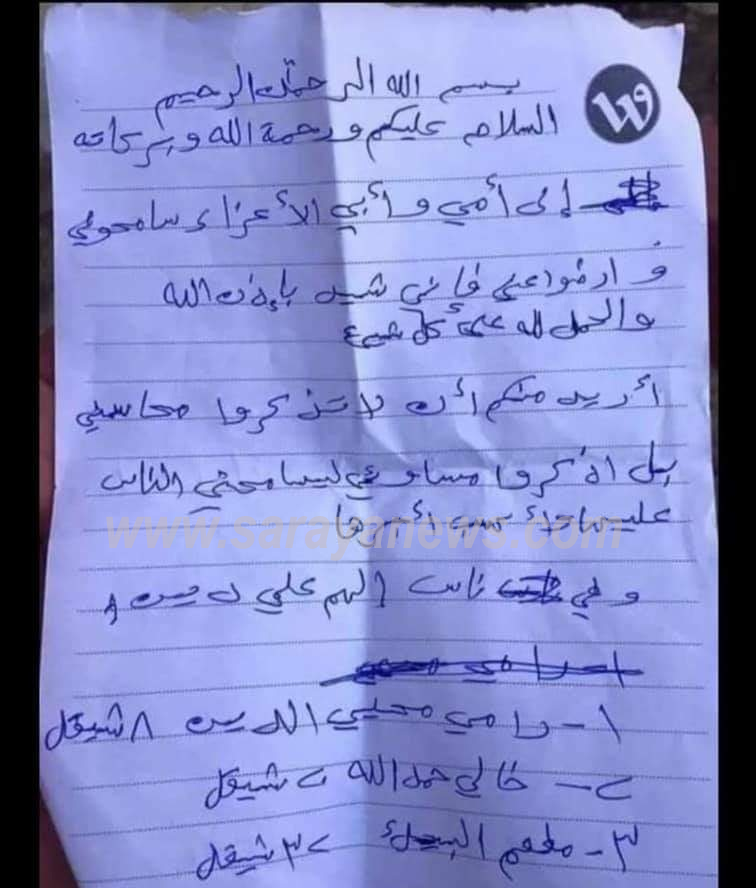 بسم الله الرحمن الرحيم
السلام عليكم ورحمة الله وبركاته
إلى أمي وأبي الأعزاء سامحوني
وارضوا عني فإني شهيد بإذن الله
والحمد لله على كل شيء
أريد منكم أن لا تذكروا محاسني
بل اذكروا مساوئي ليسامحني الناس
عليها
www.sarayanews.com
وفي ناس الهم علي دين
١- رامي محيي الدين ٨ شيقل
٢- خالي حمد الله ٢٠ شيقل
٣- مطعم ٢٣ شيقل
W